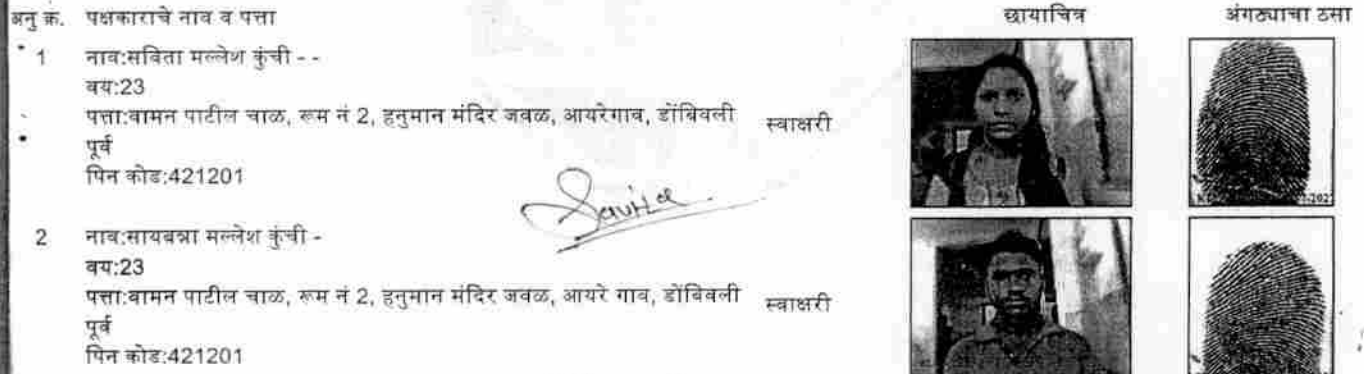 अनु क्र. पक्षकाराचे नाव व पत्ता छायाचित्र अंगठ्याचा ठसा
1 नाव:सविता मल्लेश कुंची - -
वय:23
पत्ता:वामन पाटील चाळ, रूम नं 2, हनुमान मंदिर जवळ, आयरेगाव, डोंबिवली स्वाक्षरी
पूर्व
पिन कोड:421201
Savita
2 नाव:सायबन्ना मल्लेश कुंची -
वय:23
पत्ता:वामन पाटील चाळ, रूम नं 2, हनुमान मंदिर जवळ, आयरे गाव, डोंबिवली स्वाक्षरी
पूर्व
पिन कोड:421201